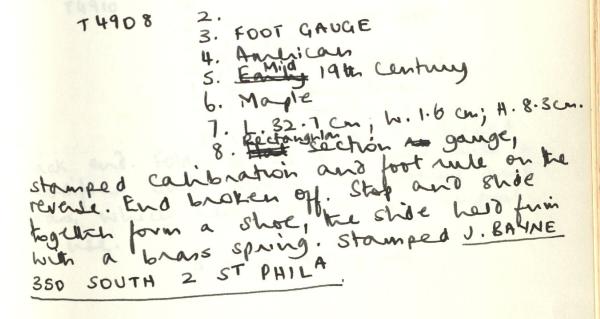 T4908 2.
3. FOOT GAUGE
4. American
5. Early Mid 19th Century
6. Maple
7. L. 32.7 cm; W. 1.6 cm; H. 8.3cm.
8. Rectangular section gauge,
stamped calibration and foot rule on the
reverse. End broken off. Stop and slide
together form a shoe, the slide held firm
with a brass spring. Stamped J. BAYNE
350 SOUTH 2 ST PHILA